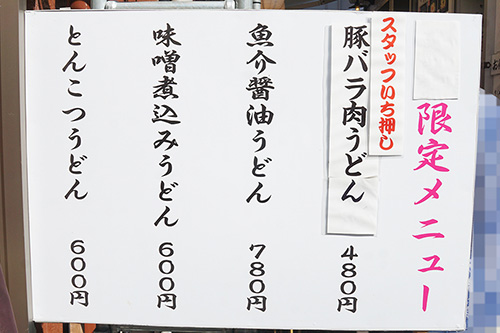 限定メニュー
スタッフいち押し
豚バラ肉うどん 480円
魚介醤油うどん 780円
味噌煮込みうどん 600円
とんこつうどん 600円